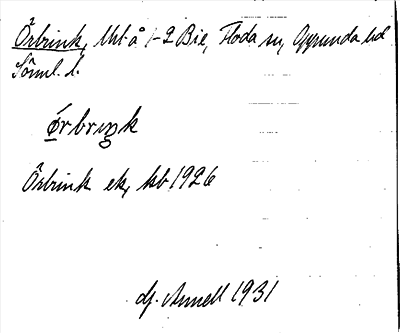 Örbrink, Urå 1-2 Bie, Floda sn, Oppunda hd
Söml. l.
ørbriŋk
Örbrink ek, kb 1926
dj. Annell 1931